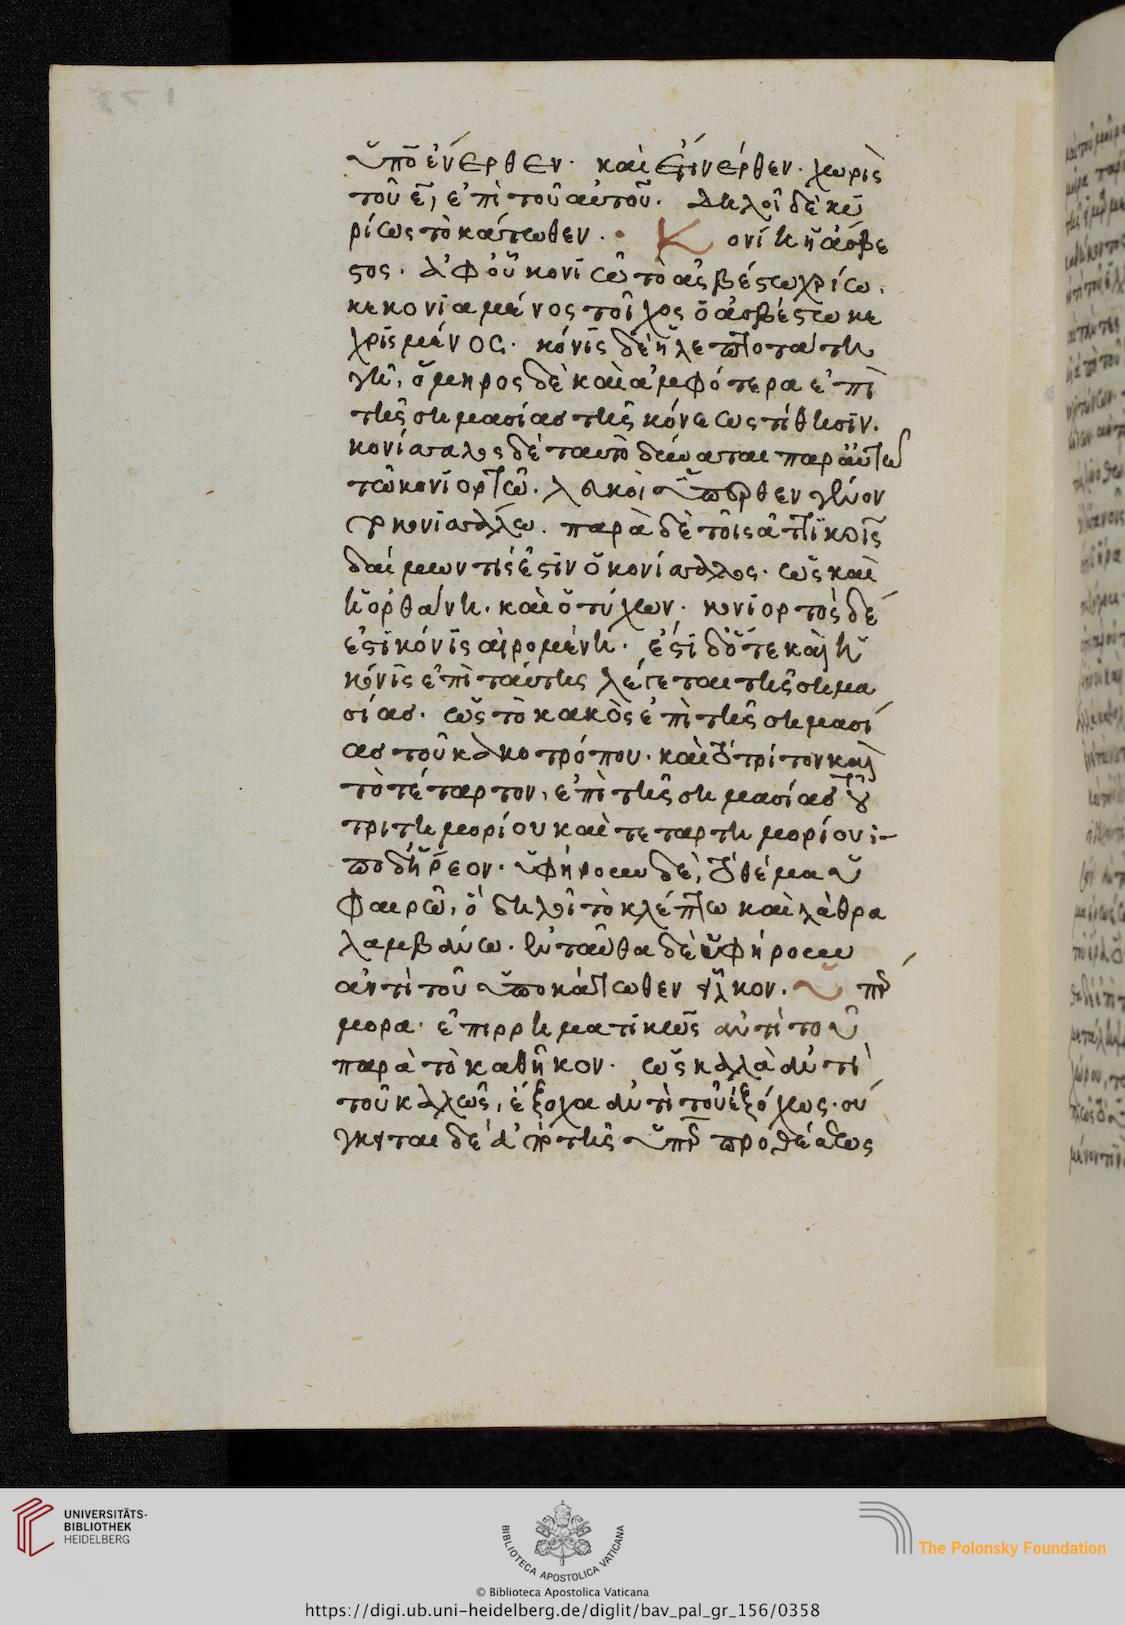 ὑπὸ ἔνερθεν. καὶ ἔπινέρθεν. χωρὶς
τοῦ ε, ἐπὶ τοῦ αὐτοῦ. δηλοῖ δὲ κυ
ρίως τὸ κάτωθεν. Κονίη ἡ ἄσβε
στος. ἀφ' οὗ κονιῶ τὸ ἀσβέστω χρίω.
κεκονιαμένος τοῖχος ὁ ἀσβέστω κε
χρισμένος. κόνις δὲ ἡ λεπτοτάτη
γῆ, ὅμηρος δὲ καὶ ἀμφότερα ἐπὶ
τῆς σημασίας τῆς κόνεως τίθησιν.
κονίσαλος δὲ ταυτὸ δύναται παρ' αὐτῶ
τῶ κονιορτῶ. λευκοὶ ὕπερθεν γένον
κονισάλω. παρὰ δὲ τοῖς ἀττικοῖς
δαίμων τίς ἐστιν ὁ κονίσαλος. ὡς καὶ
ἡ ὀρθάνη. καὶ ὁ τύχων. κονιορτὸς δέ
ἐστι κόνις αἰρομένη. ἔστι δ' ὅτε καὶ ἡ
κόνις ἐπὶ ταύτης λέγεται τῆς σημα
σίας. ὡς τὸ κακὸς ἐπὶ τῆς σημασί
ας τοῦ κακοτρόπου. καὶ τὸ τρίτον καὶ
τὸ τέταρτον, ἐπὶ τῆς σημασίας τοῦ
τριτημορίου καὶ τεταρτημορίου :-
ὑφήρουν δὲ, τὸ θέμα ὑ
φαιρῶ, ὃ δηλοῖ τὸ κλέπτω καὶ λάθρα
λαμβάνω. ἐνταῦθα δὲ ὑφήρουν
ἀντὶ τοῦ ὑποκάτωθεν εἷλκον. Ὑπὲρ
μορα. ἐπιρρηματικῶς ἀντὶ τοῦ
παρὰ τὸ καθῆκον. ὡς καλὰ ἀντὶ
τοῦ καλῶς, ἔξοχα ἀντὶ τοῦ ἐξόχως. σύ
γκειται δὲ ἀπὸ τῆς ὑπὲρ προθέσεως
UNIVERSITÄTS-
BIBLIOTHEK
HEIDELBERG
BIBLIOTECA APOSTOLICA VATICANA
The Polonsky Foundation
© Biblioteca Apostolica Vaticana
https://digi.ub.uni-heidelberg.de/diglit/bav_pal_gr_156/0358